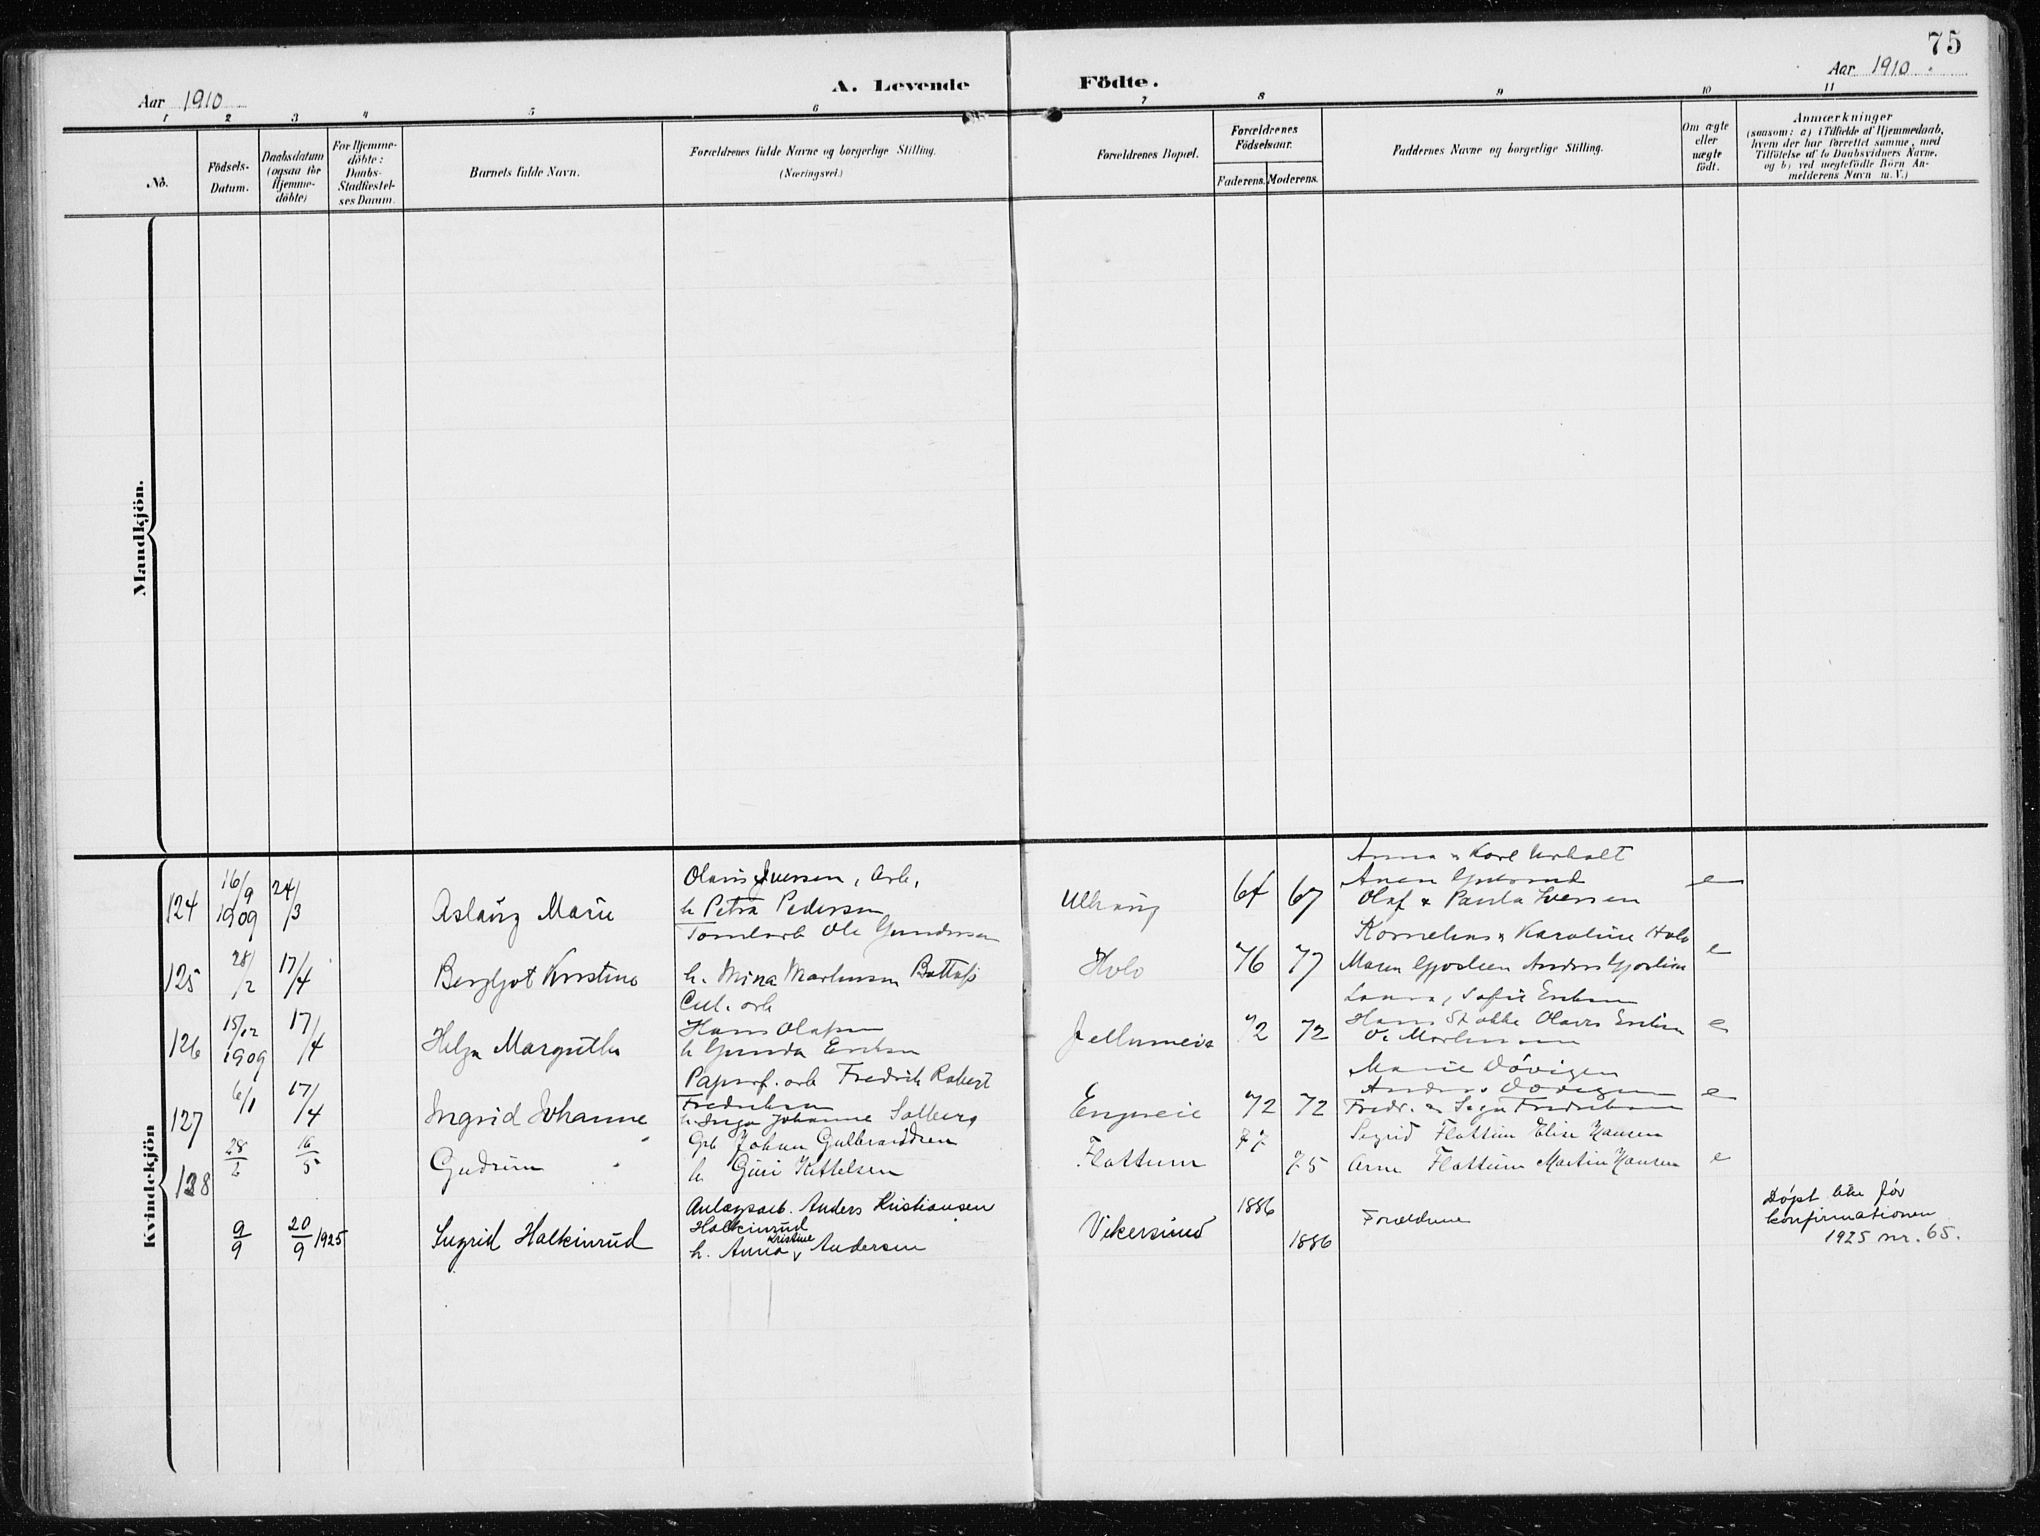 75
Aar 1910
A. Levende Födte.
Aar 1910
1 2 3 4 5 6 7 8 9 10 11
No.
Födsels-
Datum.
Daabsdatum
(ogsaa for
Hjemme-
döbte)
For Hjemme-
döbte:
Daabs-
Stadfæstel-
ses Datum.
Barnets fulde Navn.
Forældrenes fulde Navne og borgerlige Stilling.
(Næringsvei.)
Forældrenes Bopæl.
Forældrenes
Födselsaar.
Faderens. Moderens.
Faddernes Navne og borgerlige Stilling.
Om ægte
eller
uægte
født.
Anmærkninger
(saasom: a) i Tilfælde af Hjemmedaab,
hvem der har forrettet samme, med
Tilföielse af to Daabsvidners Navne,
og b) ved uegtefödte Börn An-
melderens Navn m. V.)
Mandkjön.
Kvindekjön
124
16/9
1909
24/3
Aslaug Marie
Olavus Iversen, Arb,
h Petra Pedersen
64 67
Anna & Karl
Olaf & Paula Iversen
e
125
28/2
17/4
Bergljot Kristine
Tomtearb Ole Gundersen
h. Mina Martinsen
Holo
76 77
Kornelius & Karoline Holo
Maren Anders
e
126
15/12
1909
17/4
Helga Margrethe
Cel. arb
Hans Olafsen
h Gunda Eriksen
72 72
Laura, Sofie Eriksen
e
127
6/1
17/4
Ingrid Johanne
Papirf. arb Fredrik Robert
Fredriksen
h. Inga Johanne Solberg
Engneie
72 72
Marie Dövigen
Anders Dövigen
Fredr. & Fredriksen
e
128
28/2
16/5
Gudrun
Gb Johan Gulbrandsen
h. Guri Kittelsen
Flattum
77
75
Sigrid Flattum Elise Hansen
Arne Flattum Martin Hansen
e
9/9
20/9 1925
Ingrid Halkinrud
Anlægsarb. Anders Kristiansen
Halkinrud
h. Anna Kristine Andersen
Vikersund
1886
1886
Forældrene
Döpt like för
konfirmationen
1925 nr. 65.